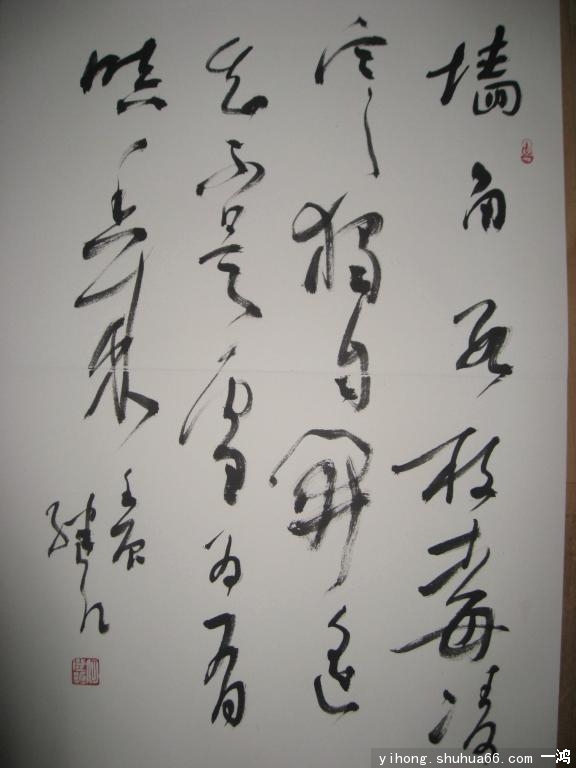 墙角数枝梅凌
寒独自開遥
知不是雪为有
暗香来
yihong.shuhua66.com 一鸿